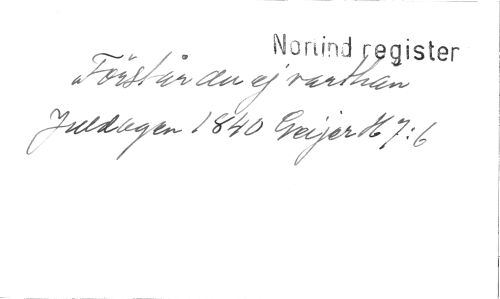 Norlind register
"Förstår du ej varthan
Juldagen 1840 Geijer H 7:6